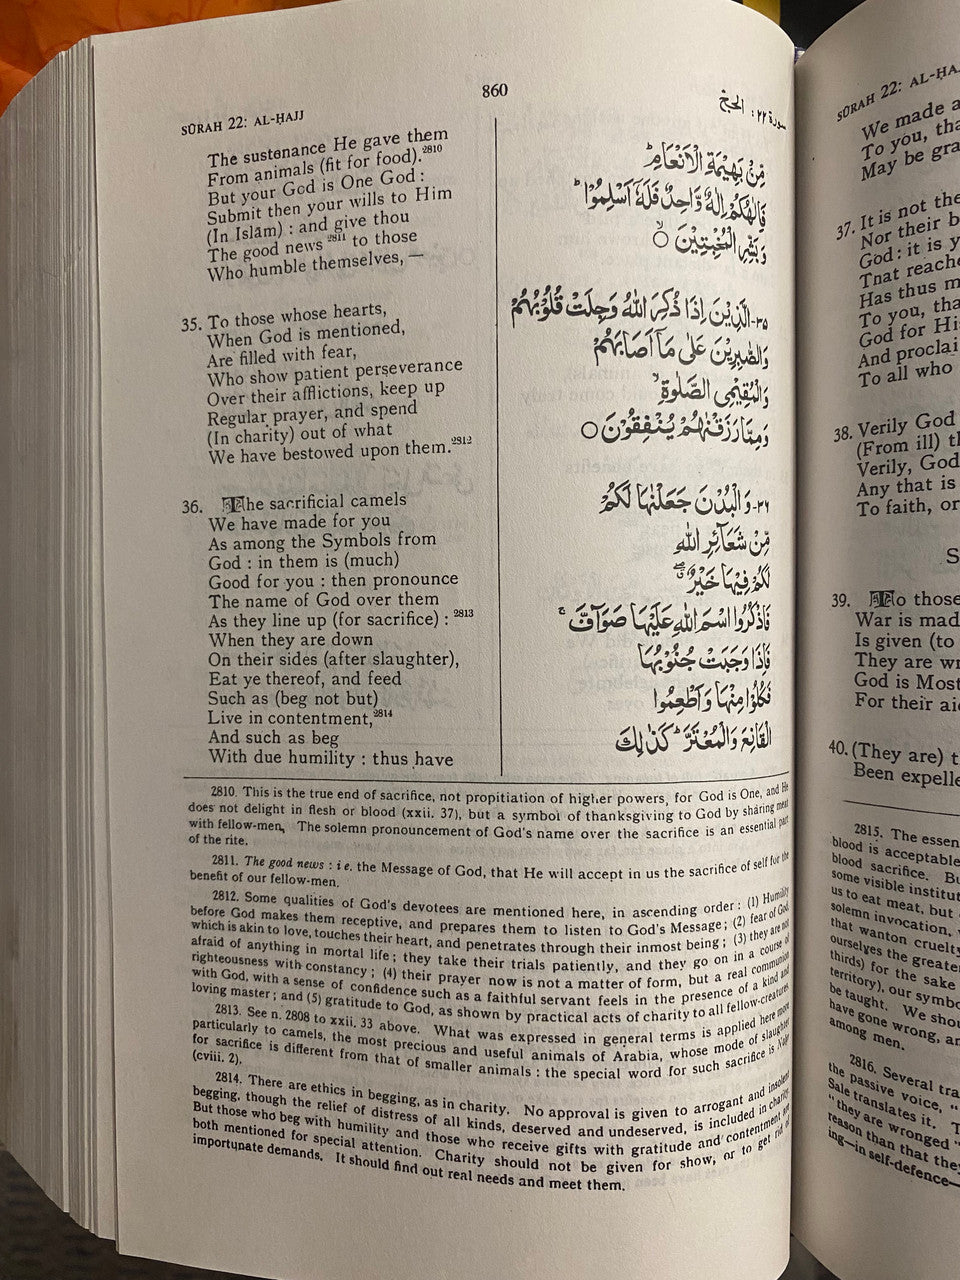 860
SŪRAH 22: AL-ḤAJJ
سورة ٢٢: الحج
The sustenance He gave them
From animals (fit for food).2810
But your God is One God :
Submit then your wills to Him
(In Islām) : and give thou
The good news 2811 to those
Who humble themselves, —
35. To those whose hearts,
When God is mentioned,
Are filled with fear,
Who show patient perseverance
Over their afflictions, keep up
Regular prayer, and spend
(In charity) out of what
We have bestowed upon them.2812
36. The sacrificial camels
We have made for you
As among the Symbols from
God : in them is (much)
Good for you : then pronounce
The name of God over them
As they line up (for sacrifice) : 2813
When they are down
On their sides (after slaughter),
Eat ye thereof, and feed
Such as (beg not but)
Live in contentment,2814
And such as beg
With due humility : thus have
مِّنْ بَهِيْمَةِ الْاَنْعَامِ ۗ
فَاِلٰهُكُمْ اِلٰهٌ وَّاحِدٌ فَلَهٗٓ اَسْلِمُوْا ۗ
وَبَشِّرِ الْمُخْبِتِيْنَ ۙ
٣٥- الَّذِيْنَ اِذَا ذُكِرَ اللّٰهُ وَجِلَتْ قُلُوْبُهُمْ
وَالصّٰبِرِيْنَ عَلٰى مَآ اَصَابَهُمْ
وَالْمُقِيْمِى الصَّلٰوةِ ۙ
وَمِمَّا رَزَقْنٰهُمْ يُنْفِقُوْنَ ○
٣٦- وَالْبُدْنَ جَعَلْنٰهَا لَكُمْ
مِّنْ شَعَآئِرِ اللّٰهِ
لَكُمْ فِيْهَا خَيْرٌ ۖ
فَاذْكُرُوا اسْمَ اللّٰهِ عَلَيْهَا صَوَآفَّ ۚ
فَاِذَا وَجَبَتْ جُنُوْبُهَا
فَكُلُوْا مِنْهَا وَاَطْعِمُوا
الْقَانِعَ وَالْمُعْتَرَّ ۗ كَذٰلِكَ
2810. This is the true end of sacrifice, not propitiation of higher powers, for God is One, and He
does not delight in flesh or blood (xxii. 37), but a symbol of thanksgiving to God by sharing meat
with fellow-men. The solemn pronouncement of God's name over the sacrifice is an essential part
of the rite.
2811. The good news : i.e. the Message of God, that He will accept in us the sacrifice of self for the
benefit of our fellow-men.
2812. Some qualities of God's devotees are mentioned here, in ascending order : (1) Humility
before God makes them receptive, and prepares them to listen to God's Message ; (2) fear of God,
which is akin to love, touches their heart, and penetrates through their inmost being ; (3) they are not
afraid of anything in mortal life ; they take their trials patiently, and they go on in a course of
righteousness with constancy ; (4) their prayer now is not a matter of form, but a real communion
with God, with a sense of confidence such as a faithful servant feels in the presence of a kind and
loving master ; and (5) gratitude to God, as shown by practical acts of charity to all fellow-creatures
2813. See n. 2808 to xxii. 33 above. What was expressed in general terms is applied here more
particularly to camels, the most precious and useful animals of Arabia, whose mode of slaughter
for sacrifice is different from that of smaller animals : the special word for such sacrifice is Naḥr
(cviii. 2).
2814. There are ethics in begging, as in charity. No approval is given to arrogant and insolent
begging, though the relief of distress of all kinds, deserved and undeserved, is included in charity.
But those who beg with humility and those who receive gifts with gratitude and contentment are
both mentioned for special attention. Charity should not be given for show, or to get rid of
importunate demands. It should find out real needs and meet them.
SŪRAH 22: AL-ḤA
We made a
To you, tha
May be gra
37. It is not the
Nor their b
God : it is y
That reache
Has thus m
To you, tha
God for Hi
And proclai
To all who
38. Verily God
(From ill) t
Verily, God
Any that is
To faith, or
S
39. To those
War is mad
Is given (to
They are wr
God is Most
For their aid
40. (They are) t
Been expelle
2815. The essen
blood is acceptable
blood sacrifice. Bu
some visible institut
us to eat meat, but
solemn invocation,
that wanton cruelty
ourselves the greater
thirds) for the sake
territory), our symbo
be taught. We shou
have gone wrong, an
among men.
2816. Several tra
the passive voice, "
Sale translates it. T
"they are wronged "
reason than that they
ing—in self-defence—